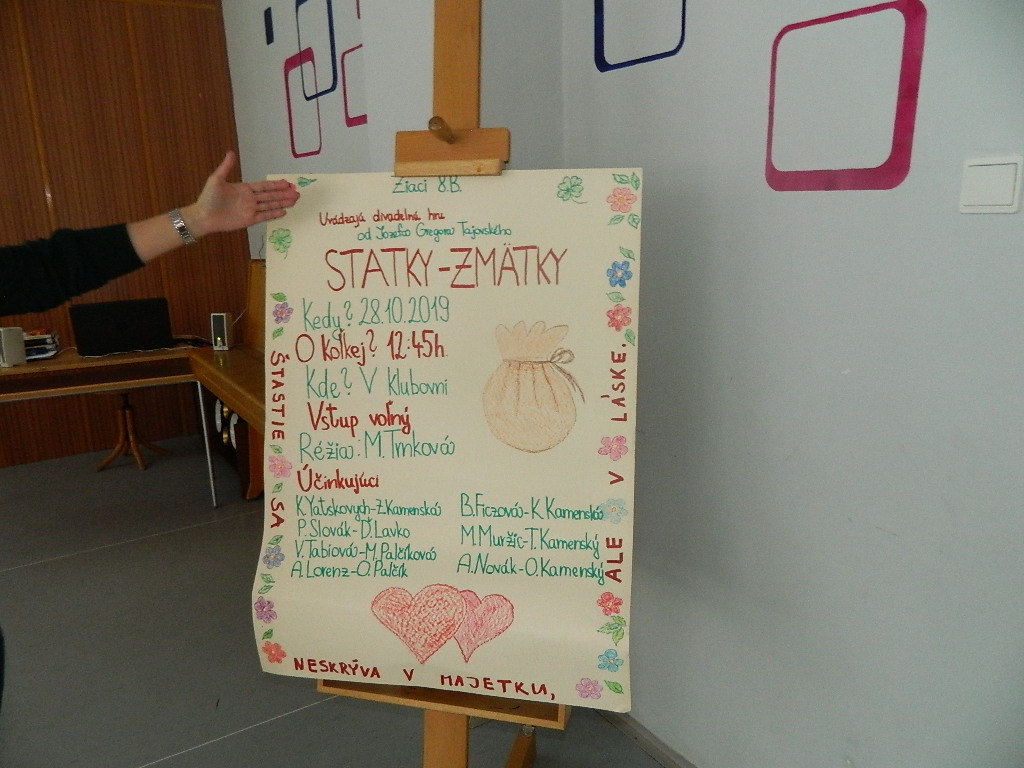 Žiaci 8.B.
Uvádzajú divadelnú hru
od Jozefa Gregora Tajovského
STATKY-ZMÄTKY
Kedy? 28.10.2019
O koľkej? 12:45h.
Kde? V Klubovni
Vstup voľný
Réžia: M. Trnková
Účinkujúci
K.Yatskovych-Z.Kamenská
P.Slovák-Ď.Lavko
V.Tabiová-M.Palčíková
A.Lorenz-O.Palčík
B.Ficzová-K.Kamenská
M.Muržic-T.Kamenský
A.Novák-O.Kamenský
ŠTASTIE SA
NESKRÝVA V MAJETKU,
ALE V LÁSKE.